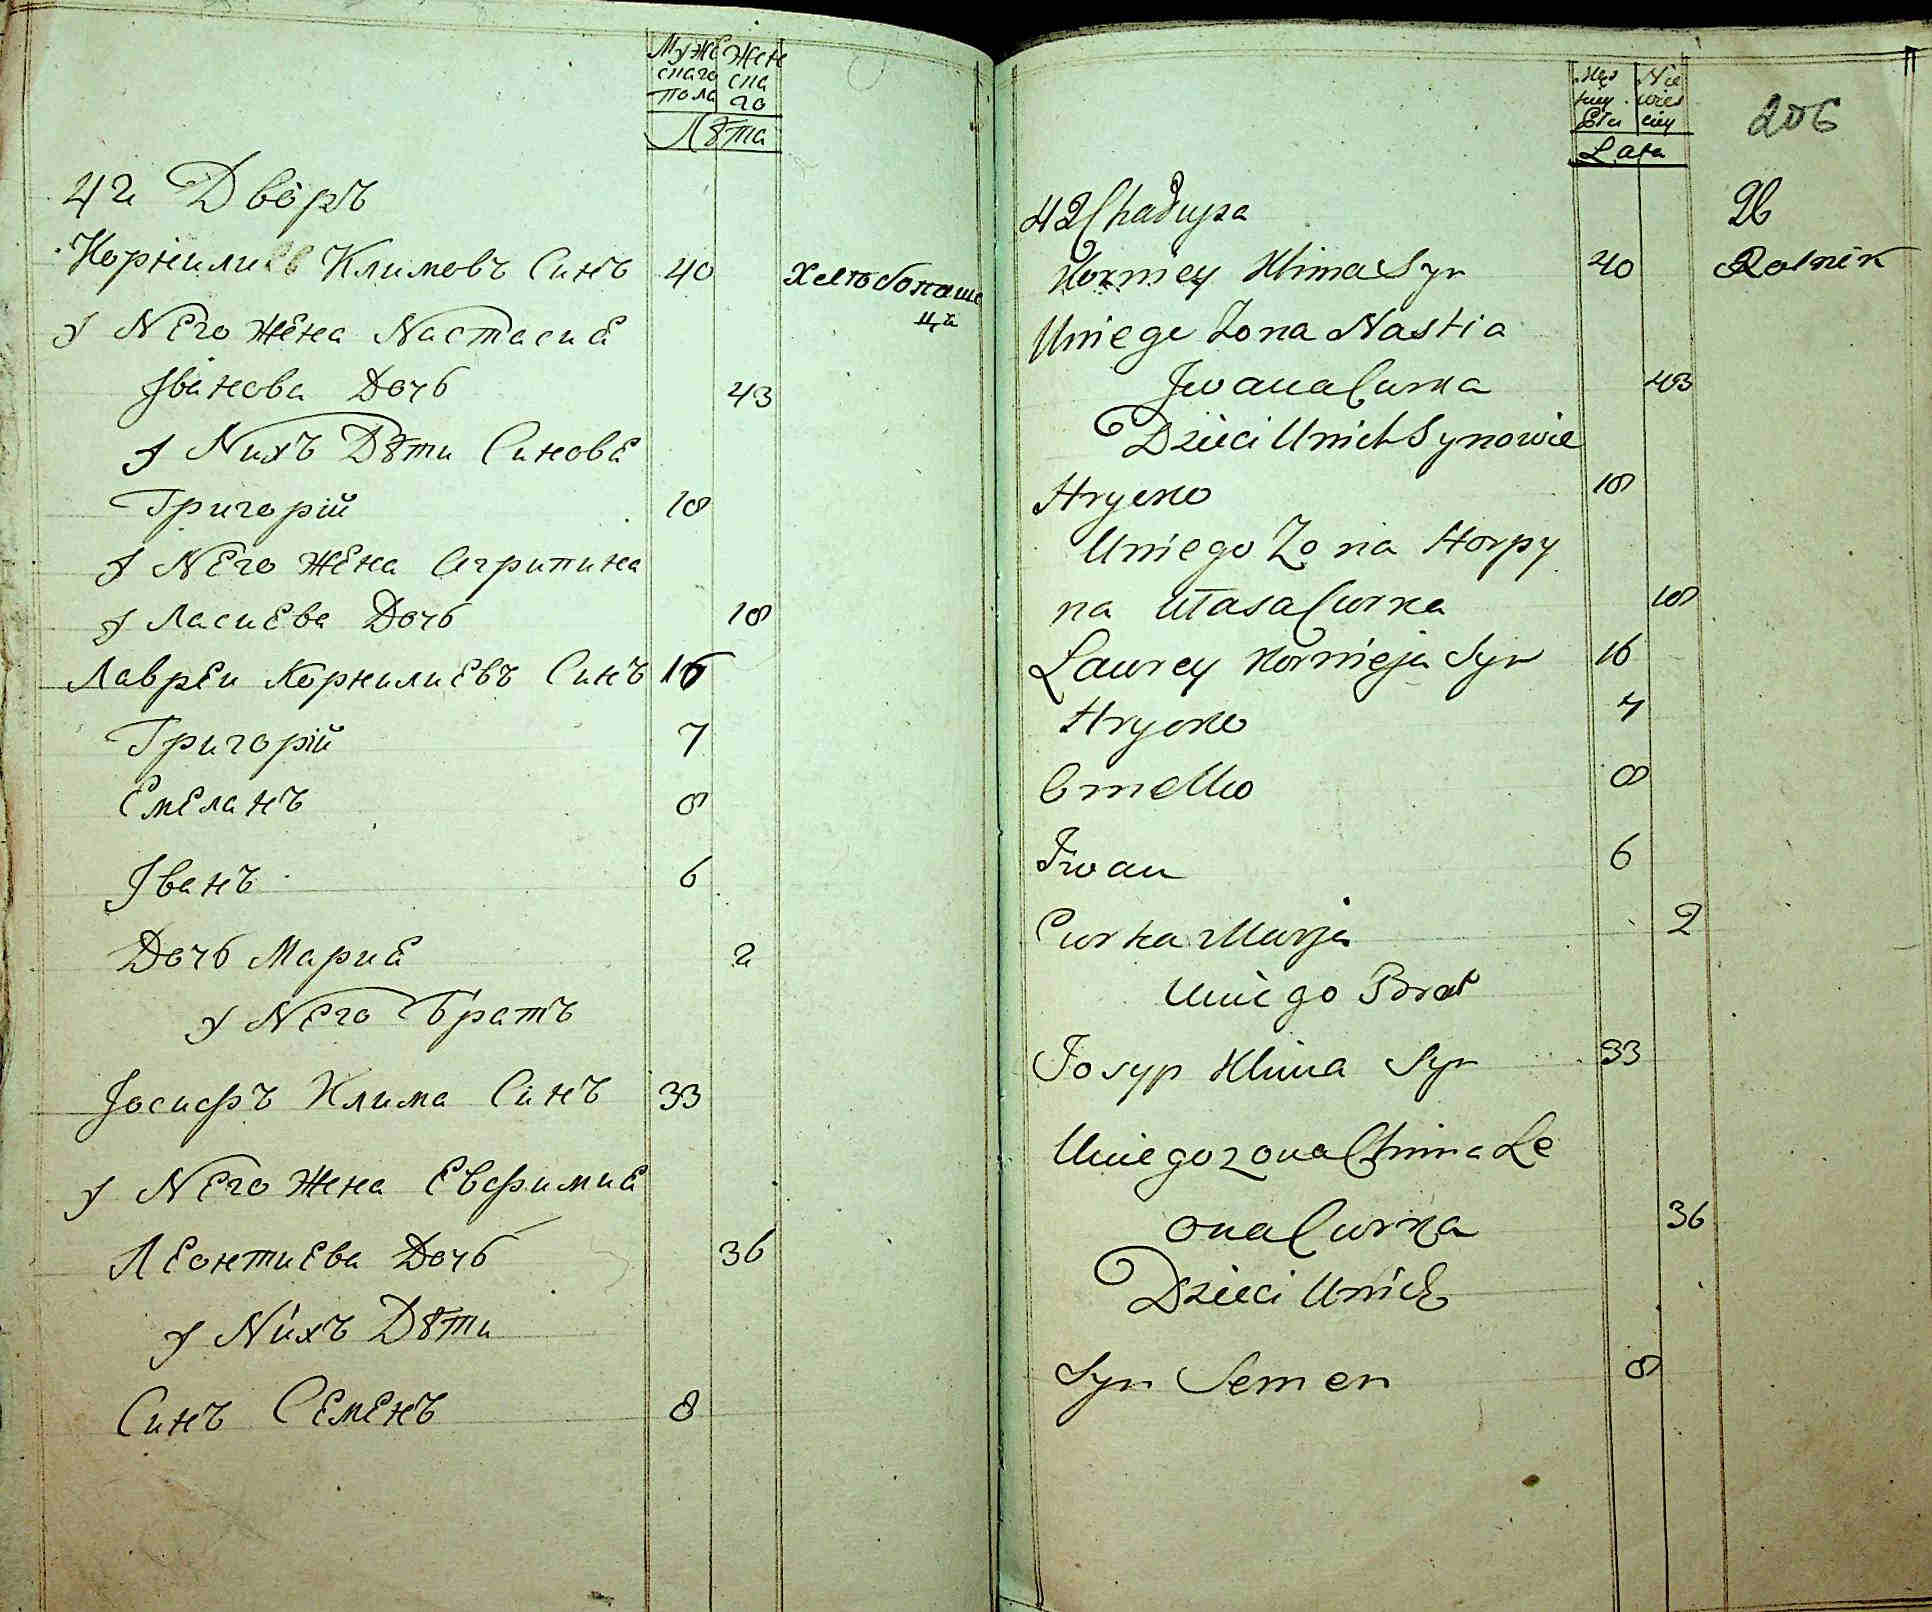 Муже Жене
скаго ска
пола го
Лѣта
42 Дворъ
Корнилиев Климовъ Синъ 40 Хлѣбопаше
цъ
у Него жена Настасиа
Іванова Дочь 43
у Нихъ Дѣти Синове
Григорій 18
у Него жена Агрипина
Дочь 18
Лавреи Корнилиевъ Синъ 16
Григорій 7
Емеланъ 8
Іванъ 6
Дочь Мариа 2
у Него Братъ
Іосифъ Клима Синъ 33
у Него жена Евфимиа
Леонтиева Дочь 36
у Нихъ Дѣти
Синъ Семенъ 8
206
Lata
42 Chałupa 26
Korniey Klima Syn 40 Rolnik
Uniego Zona Nastia
Jwana Curka 43
Dzieci Unich Synowie
Hrycko 18
Uniego Zona Horpy
na Własa Curka 18
Laurey Kornieja Syn 16
Hrycko 7
Omelko 8
Iwan 6
Curka Marja 2
Uniego Brat
Iosyp Klima Syn 33
Uniego zona Chima Le
ona Curka 36
Dzieci Unich
Syn Semen 8